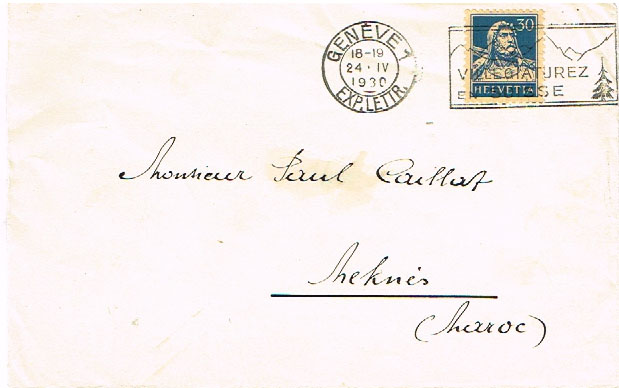 GENÈVE 1
18-19
24 · IV
1930
EXP. LETTR.
30
HELVETIA
VILLEGIATUREZ
EN SUISSE
Monsieur Paul Caillat
Meknès
(Maroc)